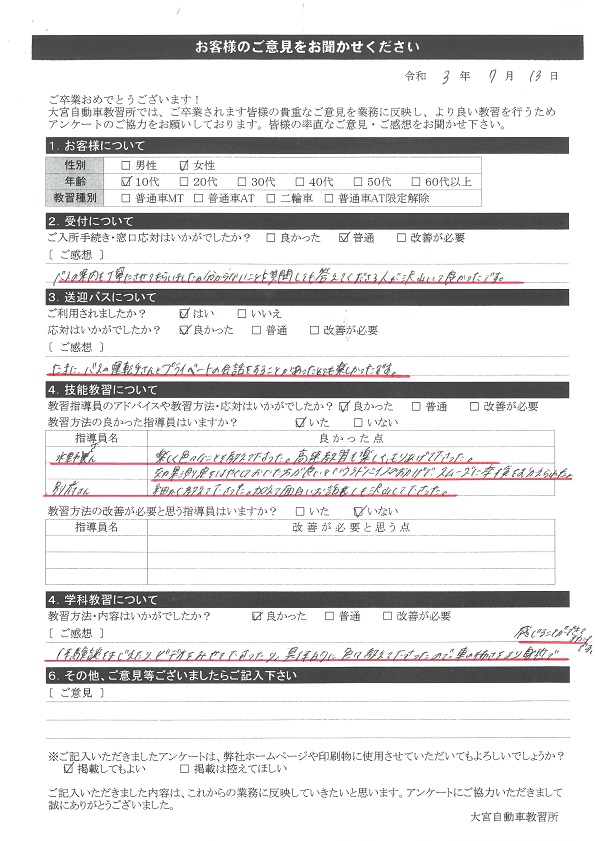 お客様のご意見をお聞かせください
令和 3 年 7 月 13 日
ご卒業おめでとうございます！
大宮自動車教習所では、ご卒業されます皆様の貴重なご意見を業務に反映し、より良い教習を行うため
アンケートのご協力をお願いしております。皆様の率直なご意見・ご感想をお聞かせ下さい。
1. お客様について
性別 □ 男性 ☑ 女性
年齢 ☑ 10代 □ 20代 □ 30代 □ 40代 □ 50代 □ 60代以上
教習種別 □ 普通車MT □ 普通車AT □ 二輪車 □ 普通車AT限定解除
2. 受付について
ご入所手続き・窓口応対はいかがでしたか？ □ 良かった ☑ 普通 □ 改善が必要
［ ご感想 ］
バスの案内も丁寧にさせてもらいました。分からないことも質問しても答えてくださる人が沢山いて良かったです。
3. 送迎バスについて
ご利用されましたか？ ☑ はい □ いいえ
応対はいかがでしたか？ ☑ 良かった □ 普通 □ 改善が必要
［ ご感想 ］
たまに、バスの運転手さんとプライベートの会話をすることがあったとても楽しかったです。
4. 技能教習について
教習指導員のアドバイスや教習方法・応対はいかがでしたか？ ☑ 良かった □ 普通 □ 改善が必要
教習方法の良かった指導員はいますか？ ☑ いた □ いない
指導員名 良かった点
楽しく色々なことを教えて下さった。高速教習も楽しくもりあげて下さった。
別府さん 細かく教えて下さった。加えて面白いお話も沢山して下さった。
教習方法の改善が必要と思う指導員はいますか？ □ いた ☑ いない
指導員名 改善が必要と思う点
4. 学科教習について
教習方法・内容はいかがでしたか？ ☑ 良かった □ 普通 □ 改善が必要
［ ご感想 ］ 感じることができて
体験談をまじえたりビデオをみせて下さったり、具体的に色々教えて下さったので、車の怖さをより身近で
6. その他、ご意見等ございましたらご記入下さい
［ ご意見 ］
※ご記入いただきましたアンケートは、弊社ホームページや印刷物に使用させていただいてもよろしいでしょうか？
☑ 掲載してもよい □ 掲載は控えてほしい
ご記入いただきました内容は、これからの業務に反映していきたいと思います。アンケートにご協力いただきまして
誠にありがとうございました。
大宮自動車教習所